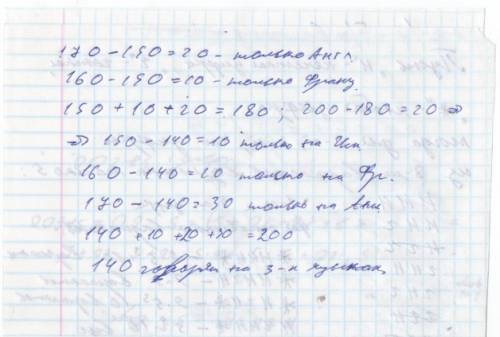 170 - 150 = 20 - только Англ.
160 - 150 = 10 - только Франц.
150 + 10 + 20 = 180; 200 - 180 = 20 ⇒
⇒ 150 - 140 = 10 только на Исп.
160 - 140 = 20 только на Фр.
170 - 140 = 30 только на Анг.
140 + 10 + 20 + 30 = 200
140 говорят на 3-х языках